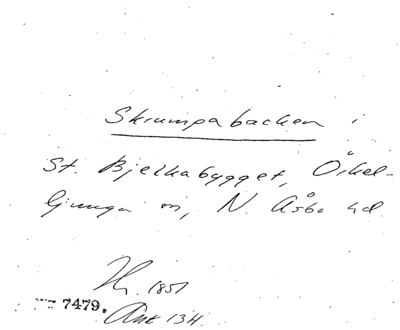 Skrumpabacken i
St. Bjelkabygget, Örkel-
ljunga sn, N. Åsbo hd
1851
7479.
Ant 134